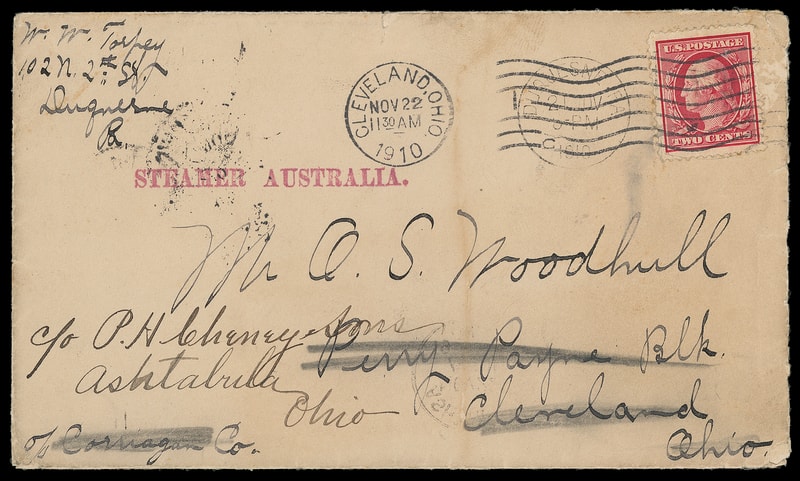 W. W. Torpey
102 N. 2nd St.
Duquesne
Pa
CLEVELAND, OHIO.
NOV 22
11 30 AM
1910
U.S. POSTAGE
TWO CENTS
STEAMER AUSTRALIA.
Mr O. S. Woodhull
c/o P. H. Cheney & Sons
Perry Payne Blk.
Ashtabula
Ohio
Cleveland
Ohio.
o/o Corrigan Co.